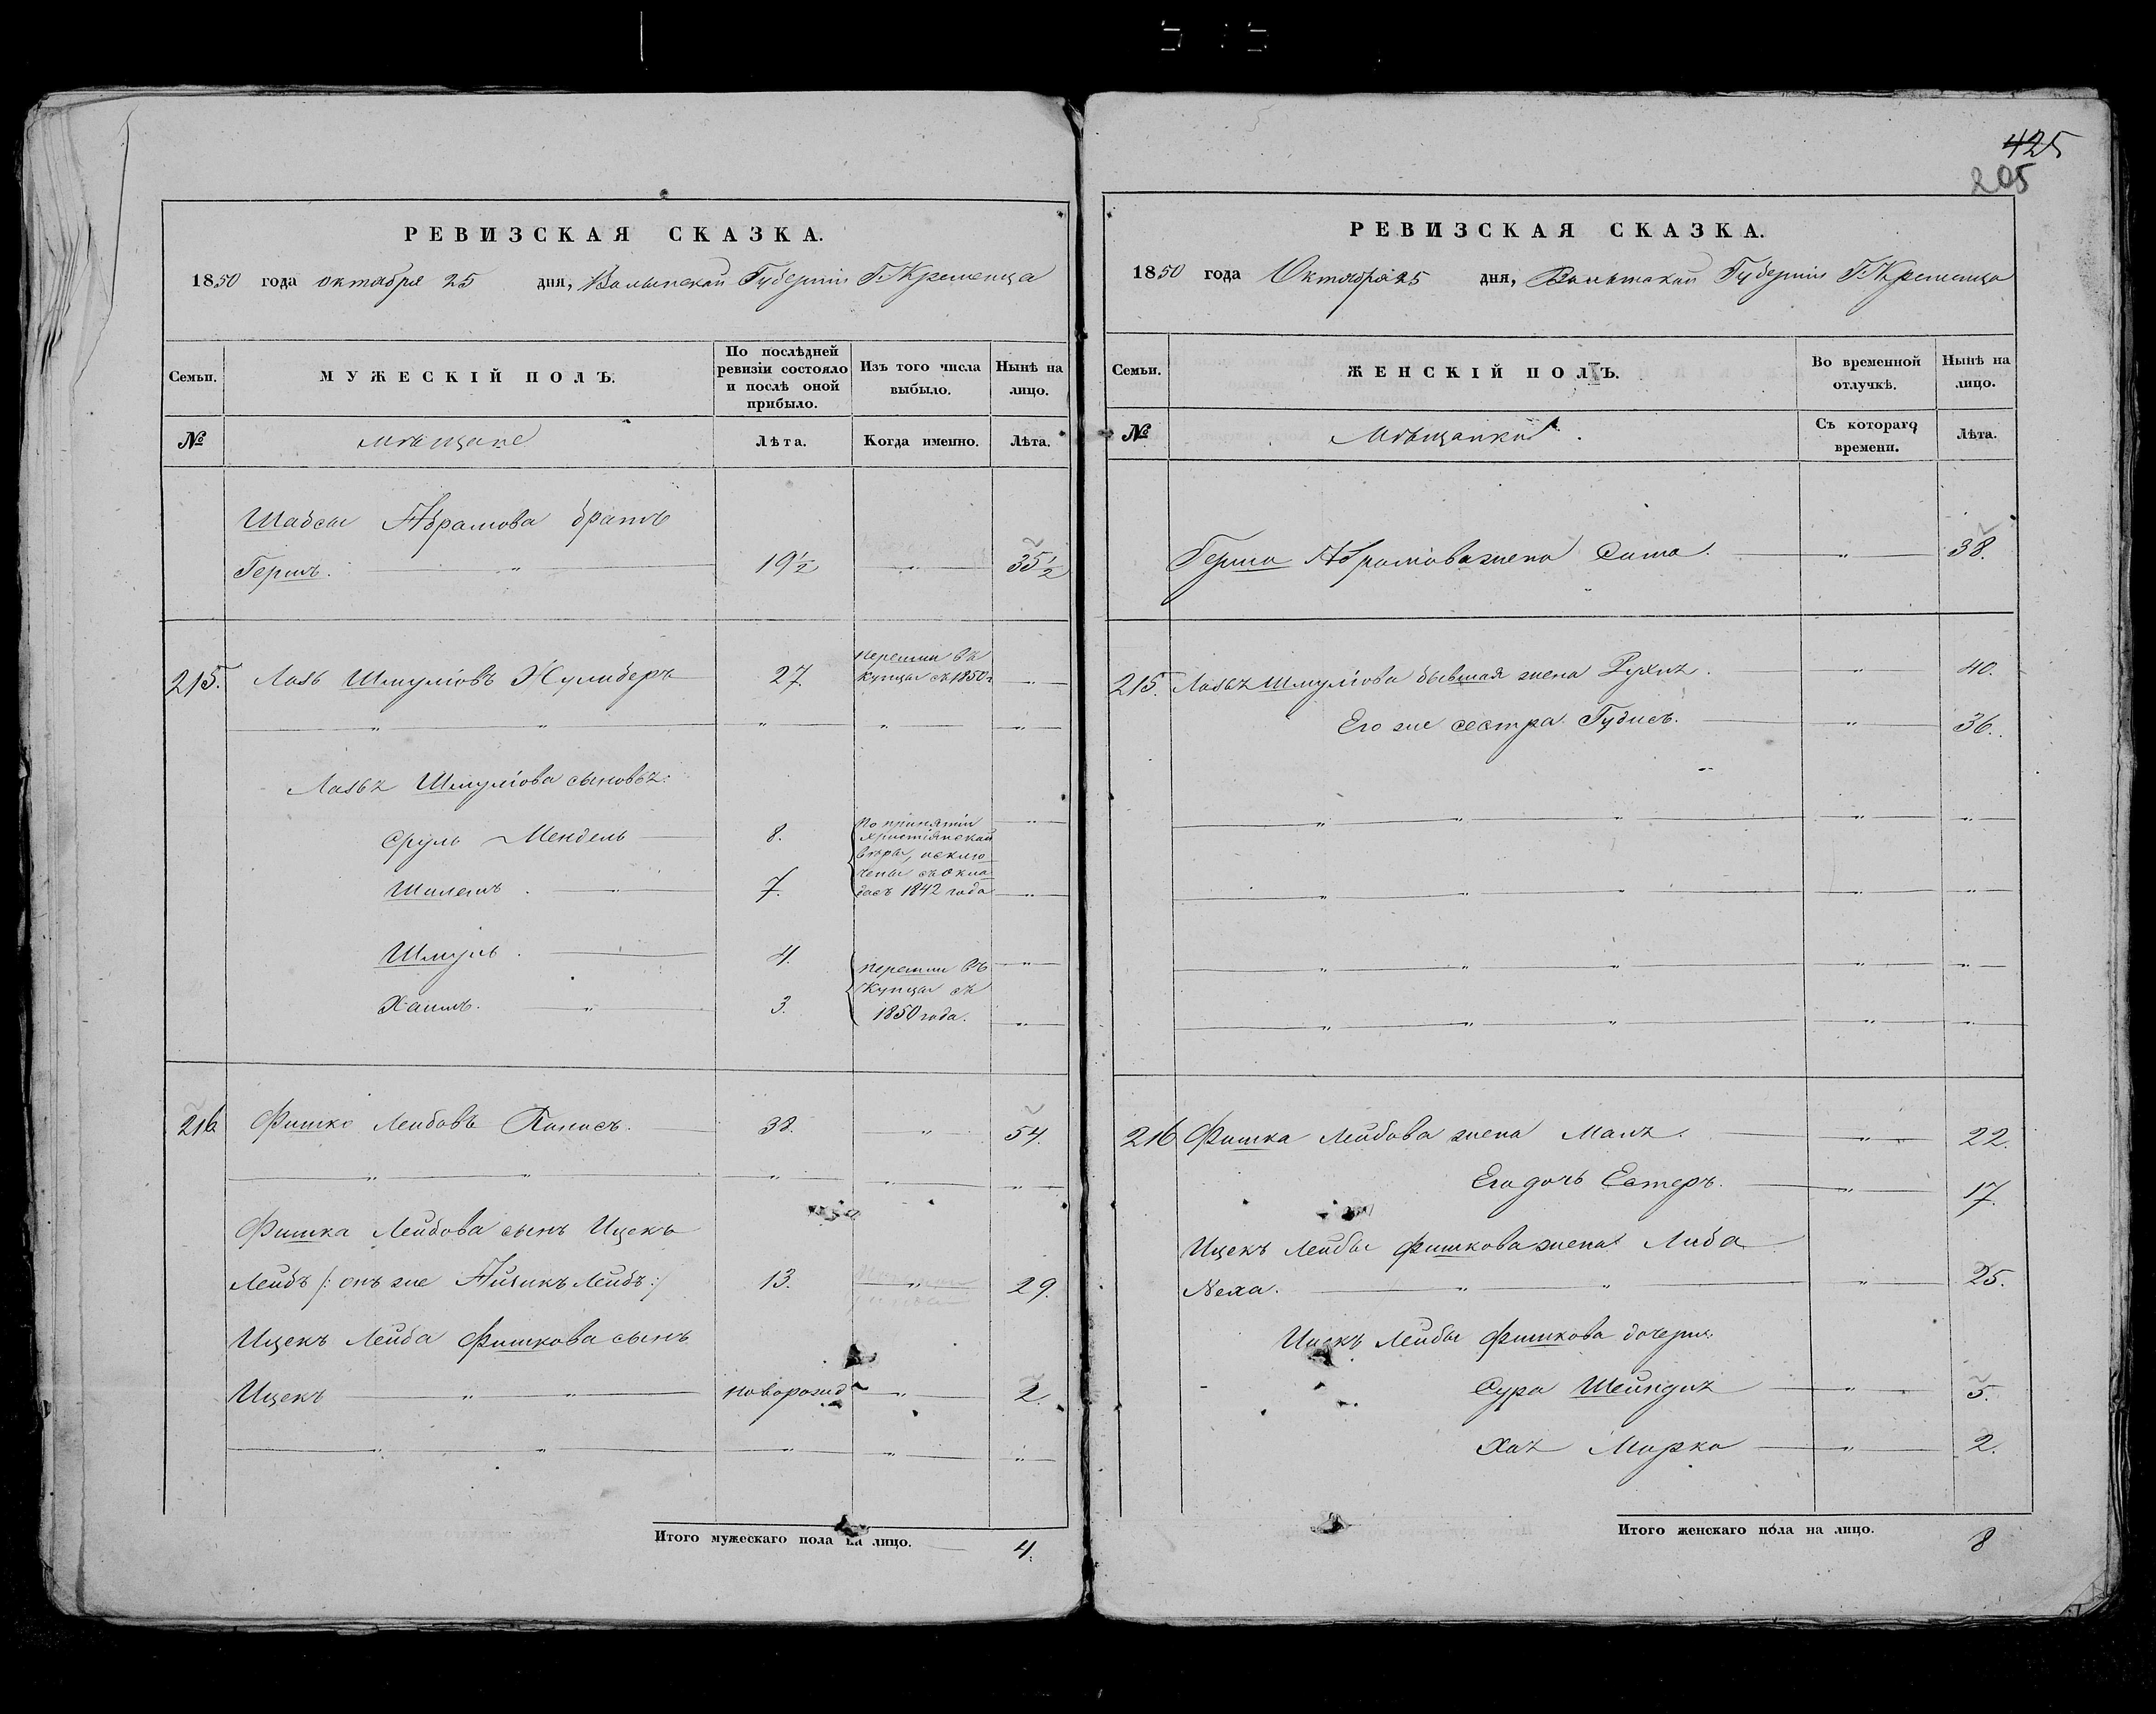 425
205
РЕВИЗСКАЯ СКАЗКА.
1850 года октября 25 дня, Волынской Губерніи Г. Кременца
Семьи. МУЖЕСКІЙ ПОЛЪ. По послѣдней ревизіи состояло и послѣ оной прибыло. Изъ того числа выбыло. Нынѣ на лицо.
№ мѣщане Лѣта. Когда именно. Лѣта.
Шабсы Абрамова братъ
Гершъ. " 19½ " 35½
215. Шмуліовъ 27. перешли въ купцы съ 1850 г "
Шмуліова сыновья:
Сруль Мендель 8. По принятіи Христіянской вѣры, исключены съ оклада съ 1842 года "
7. "
Шмуль. 4. перешли въ Купцы съ 1850 года. "
Хаимъ. " 3. "
216 Фишко Лейбовъ 38. " 54.
Фишка Лейбова сынъ Ицекъ
Лейбъ /: онъ же Лейбъ :/ 13. " 29.
Ицекъ Лейба Фишкова сынъ
Ицекъ " " новорожд " 2.
Итого мужескаго пола на лицо. 4.
РЕВИЗСКАЯ СКАЗКА.
1850 года Октября 25 дня, Волынской Губерніи Г. Кременца
Семьи. ЖЕНСКІЙ ПОЛЪ. Во временной отлучкѣ. Нынѣ на лицо.
№ Мѣщанки Съ котораго времени. Лѣта.
Герша Абрамова жена Сима. " 38.
215. Шмуліова бывшая жена Рухля. " 40.
Его же сестра Гудись. " 36.
216 Фишка Лейбова жена Маля. " 22.
Его дочь Естеръ. " 17.
Ицекъ Лейбы Фишкова жена Либа
Неха. " " " 25.
Ицекъ Лейбы Фишкова дочери:
Сура Шейндля " 5.
Хая Мирка " 2.
Итого женскаго пола на лицо. 8